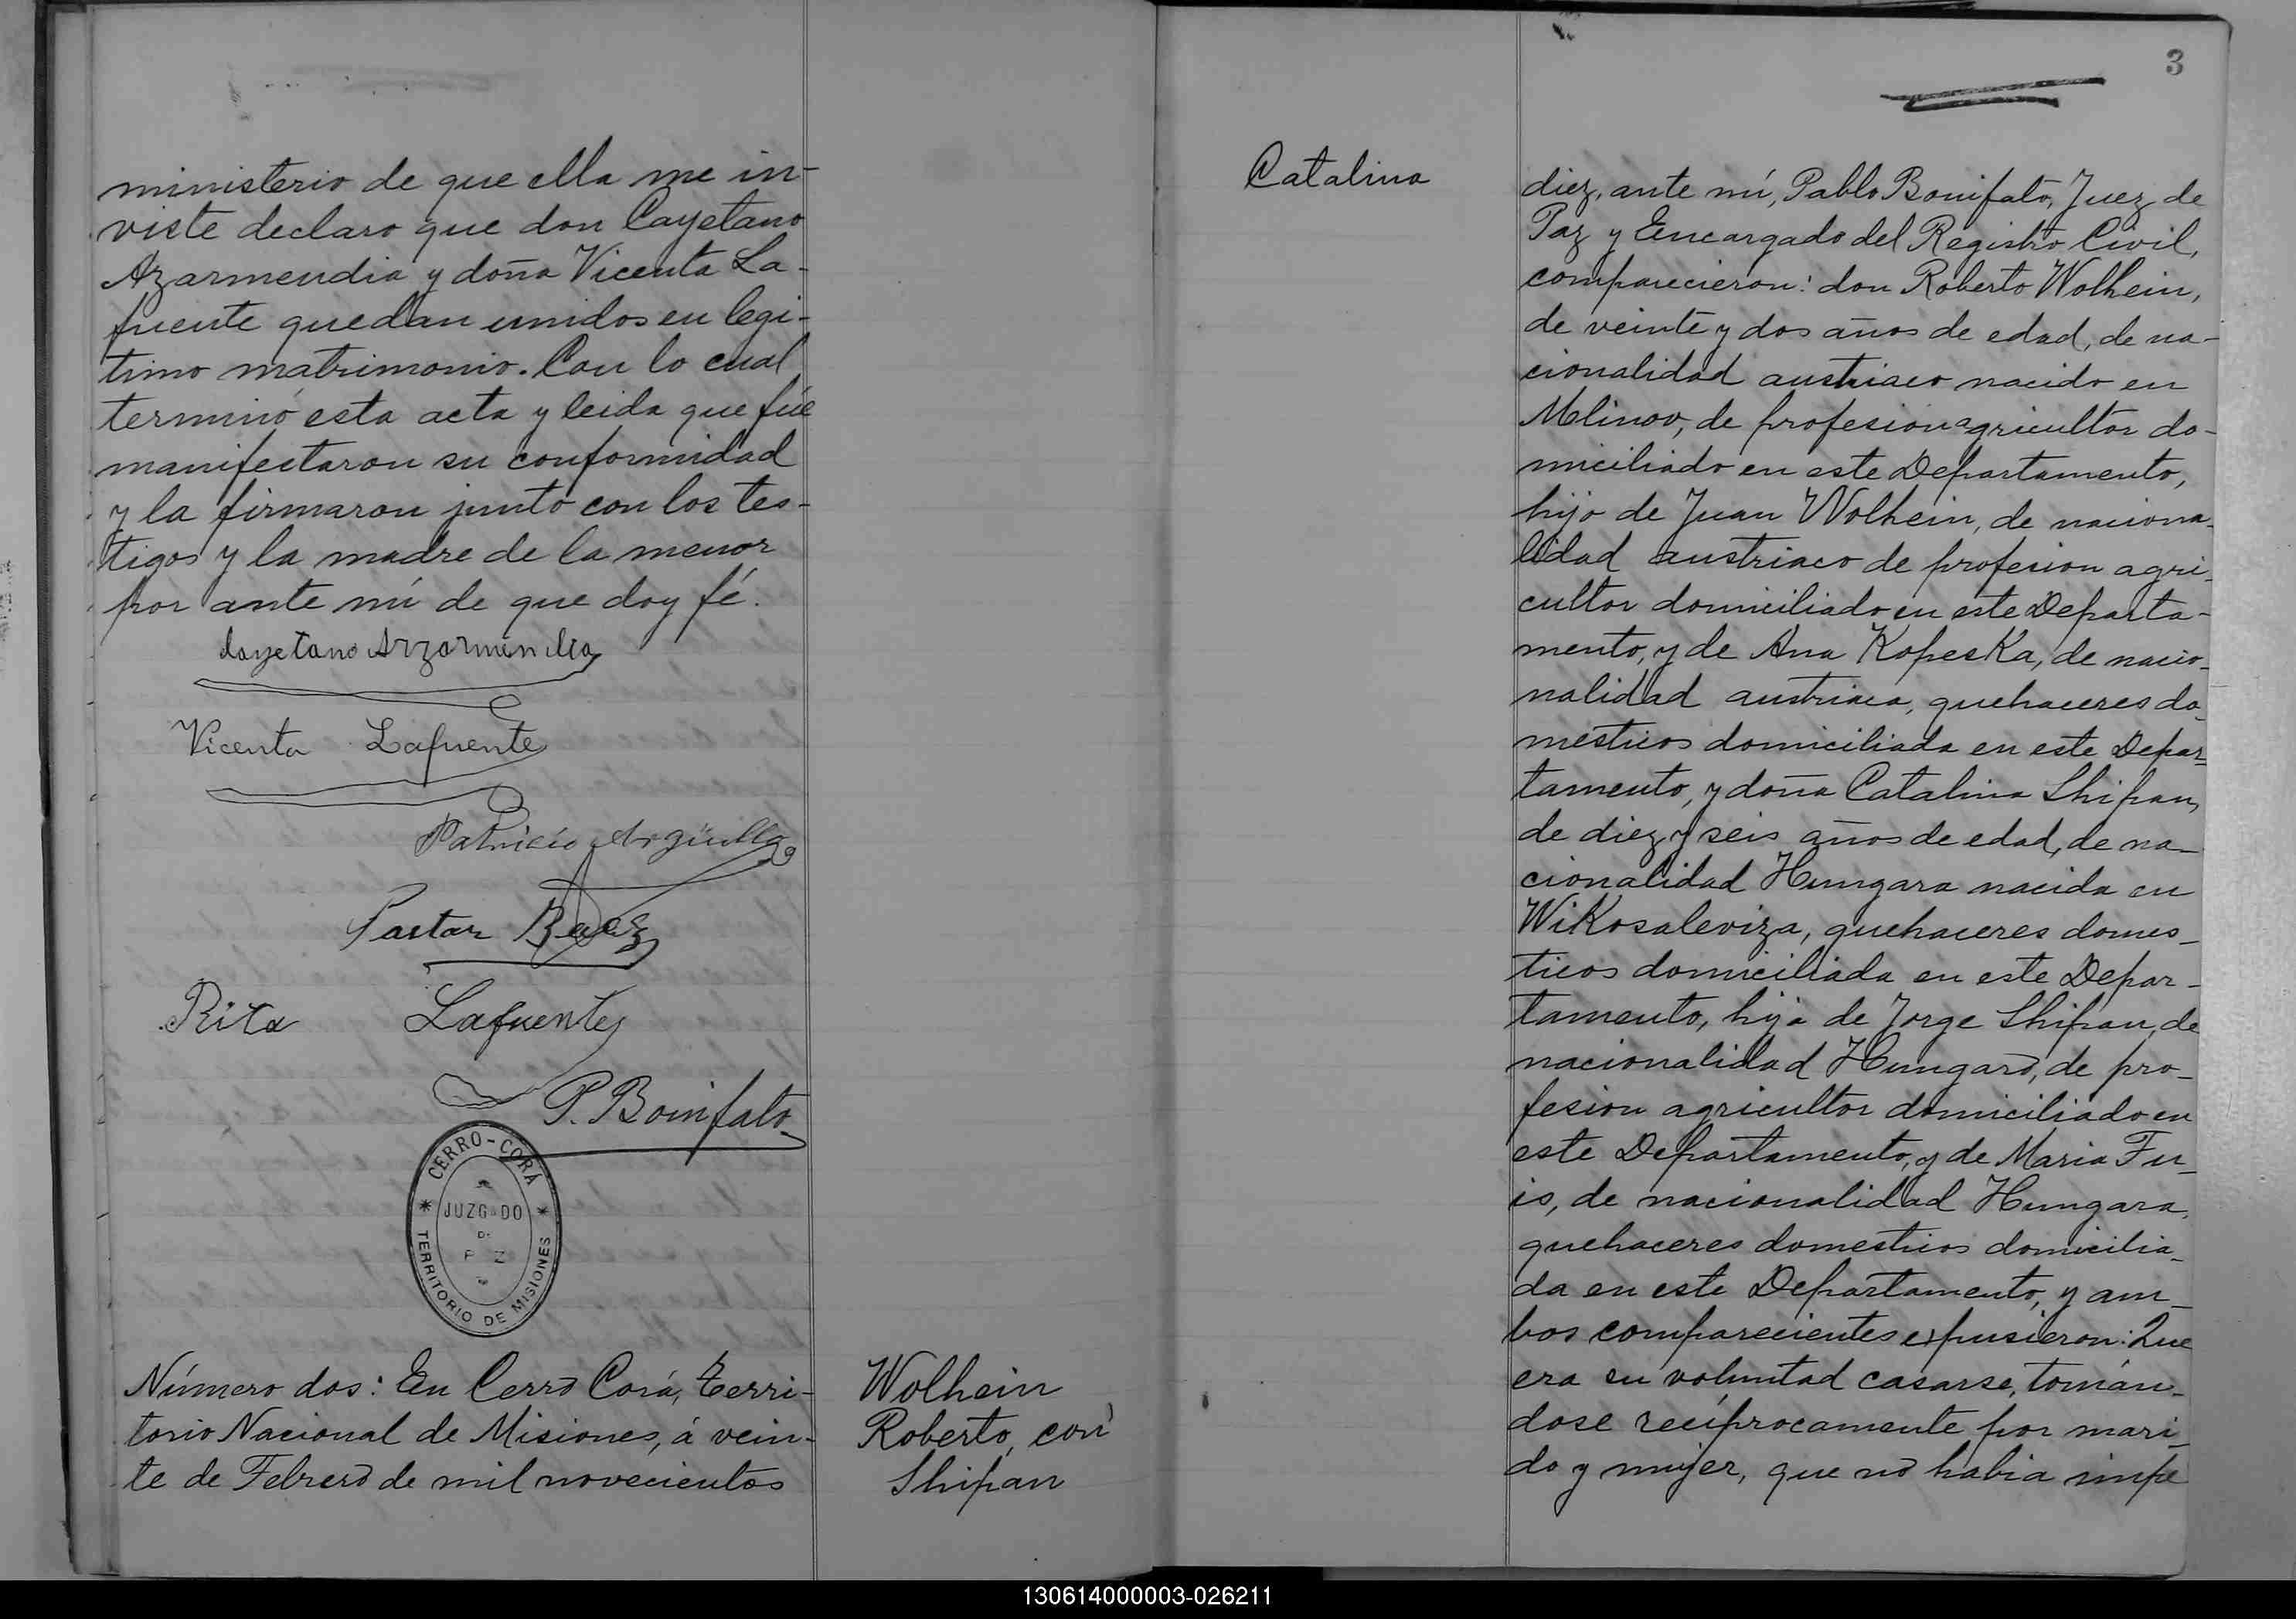 ministerio de que ella me in-
viste declaro que don Cayetano
Azarmendia y doña Vicenta La-
fuente quedan unidos en legi-
timo matrimonio. Con lo cual
terminó esta acta y leida que fué
manifestaron su conformidad
y la firmaron junto con los tes-
tigos y la madre de la menor
por ante mí de que doy fé.
Cayetano Arzarmendia
Vicenta Lafuente
Patricio Argüello
Pastor Baez
Rita Lafuente
P. Bonifato
CERRO-CORÁ
JUZGADO
DE
PAZ
TERRITORIO DE MISIONES
Número dos: En Cerro Corá, Terri-
torio Nacional de Misiones, á vein-
te de Febrero de mil novecientos
Wolhein
Roberto, con
Shipan
Catalina
3
diez, ante mí, Pablo Bonifato, Juez de
Paz y Encargado del Registro Civil,
comparecieron: don Roberto Wolhein,
de veinte y dos años de edad, de na-
cionalidad austriaco nacido en
Mlinov, de profesion agricultor do-
miciliado en este Departamento,
hijo de Juan Wolhein, de naciona-
lidad austriaco de profesion agri-
cultor domiciliado en este Departa-
mento, y de Ana Kopeska, de nacio-
nalidad austriaca, quehaceres do-
mesticos domiciliada en este Depar-
tamento, y doña Catalina Shipan,
de diez y seis años de edad, de na-
cionalidad Hungara nacida en
Wikosaleviza, quehaceres domes-
ticos domiciliada en este Depar-
tamento, hija de Jorge Shipan, de
nacionalidad Hungaro, de pro-
fesion agricultor domiciliado en
este Departamento, y de Maria Fu-
is, de nacionalidad Hungara,
quehaceres domesticos domicilia-
da en este Departamento, y am-
bos comparecientes expusieron: Que
era su voluntad casarse, tomán-
dose recíprocamente por mari-
do y mujer, que no habia impe
130614000003-026211